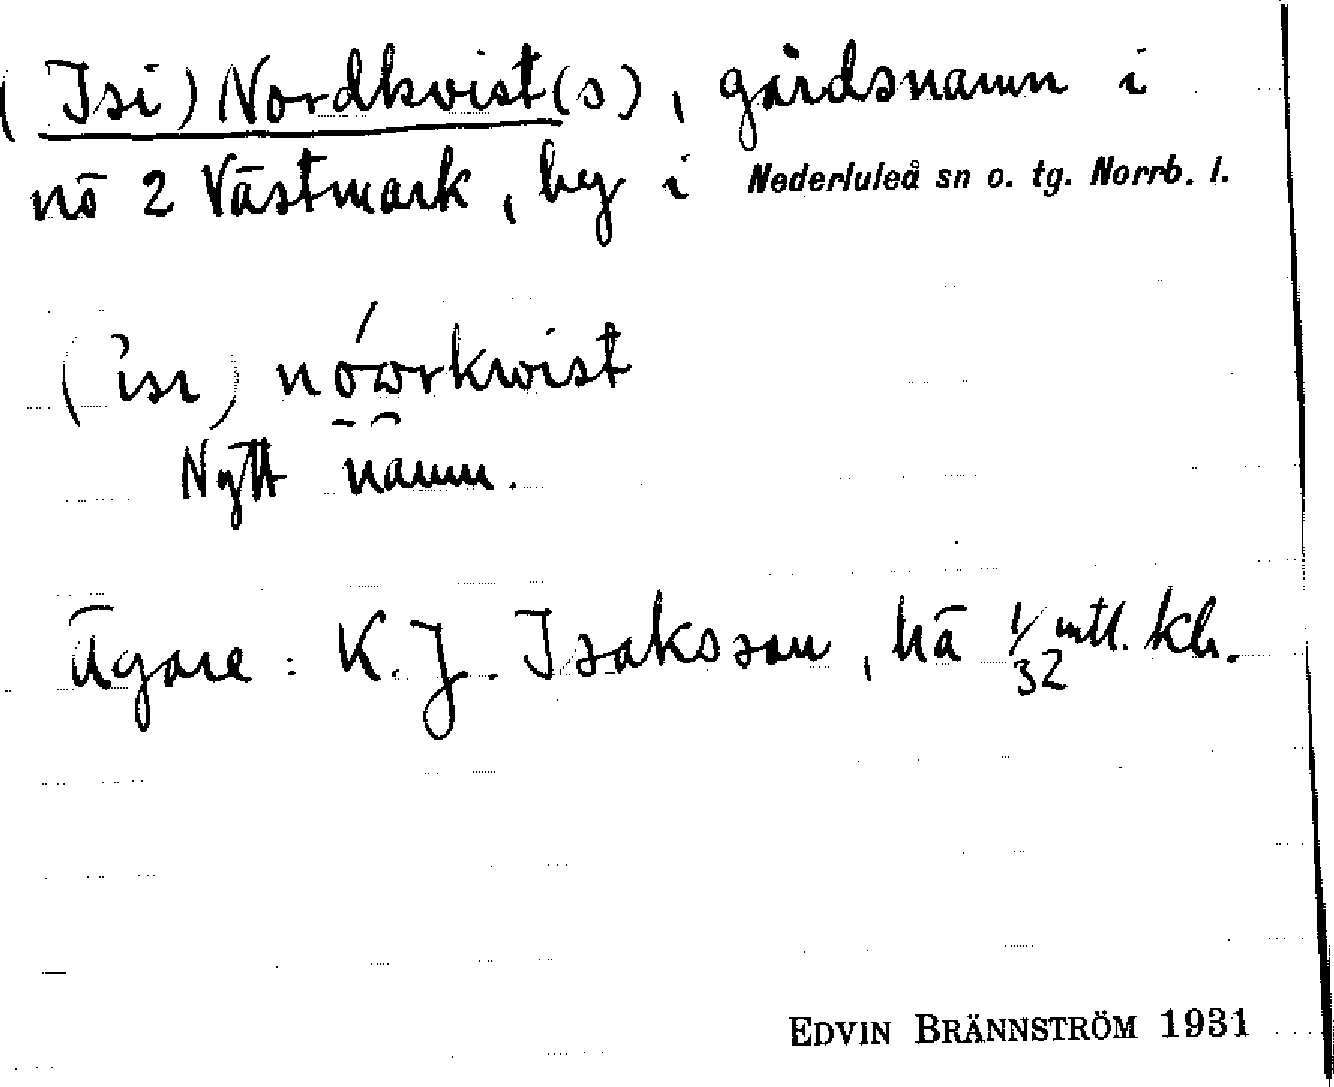 (Isi) Nordkvist(s), gårdsnamn i
nö 2 Västmark, by i Nederluleå sn o. tg. Norrb. l.
nóworkwist
Nytt namn.
Ägare: K. J. Isaksson, hä 1/32 mtl. kr.
EDVIN BRÄNNSTRÖM 1931